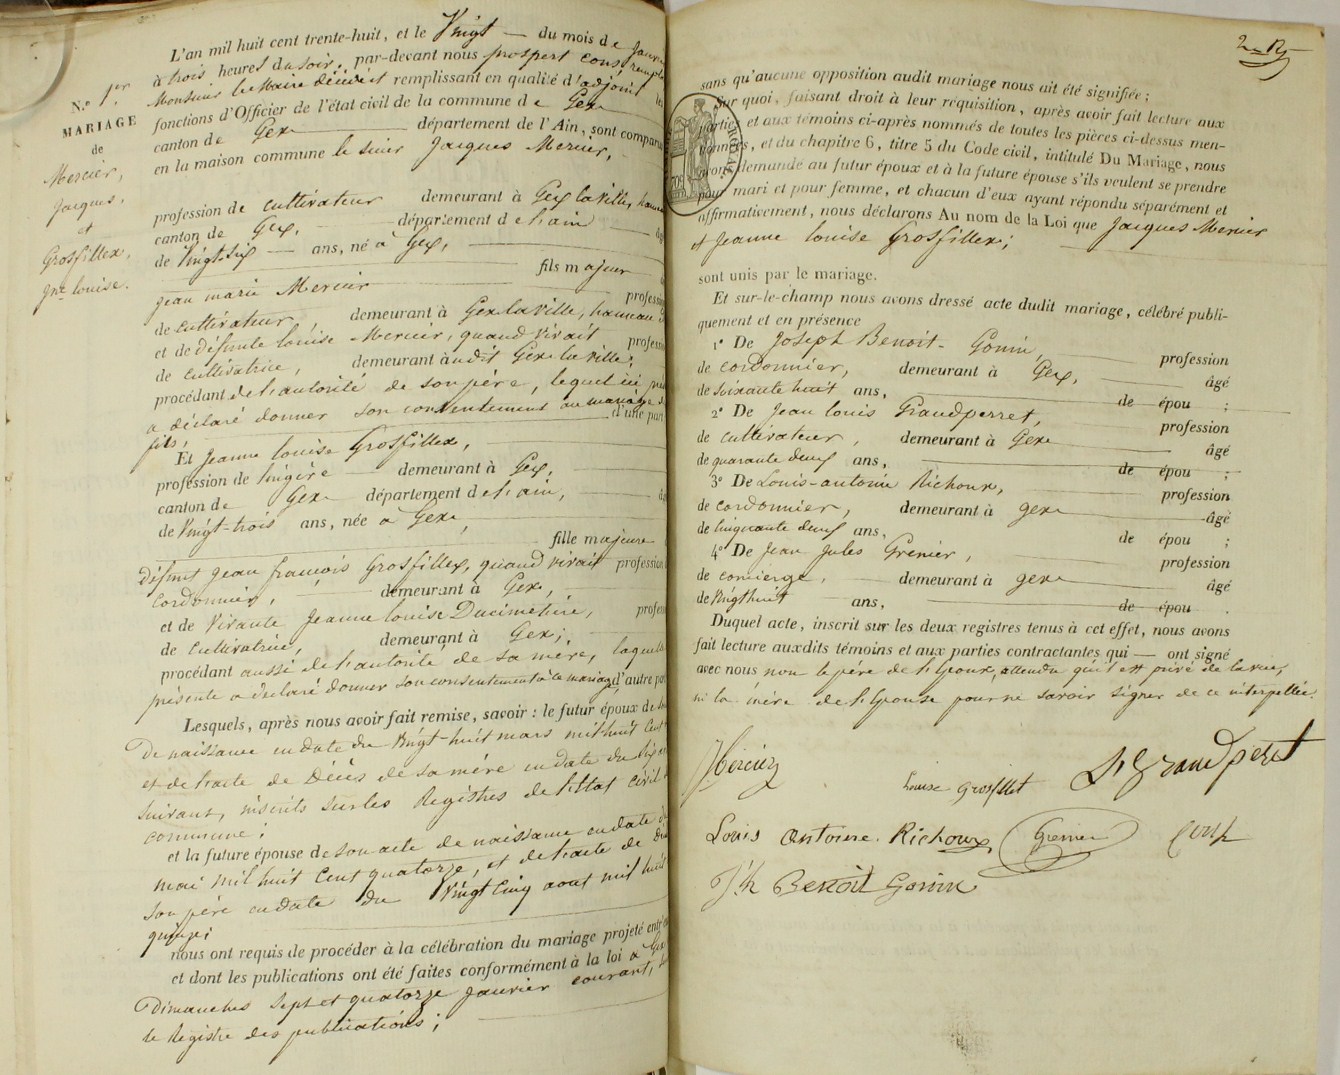 N.º 1er
MARIAGE
de
Mercier,
Jacques,
et
Grosfillex,
Jne Louise.
L'an mil huit cent trente-huit, et le Vingt du mois de Janvier
à trois heures du soir, par-devant nous prospert
Monsieur le Maire décédé remplissant en qualité d'adjoint les
fonctions d'Officier de l'état civil de la commune de Gex
canton de Gex département de l'Ain, sont comparus
en la maison commune le sieur Jacques Mercier,
profession de cultivateur demeurant à Gex la ville, hameau
canton de Gex, département de l'ain
de Vingt-six ans, né à Gex,
fils majeur
jean marie Mercier profession
de cultivateur demeurant à Gex la Ville, hameau
et de défunte louise Mercier, quand vivait profession
de cultivatrice, demeurant audit Gex la ville;
procédant de l'autorité de son père, lequel ici
a déclaré donner son consentement au mariage
fils, d'une part
Et Jeanne louise Grosfillex,
profession de lingère demeurant à Gex,
canton de Gex département de l'ain,
de Vingt-trois ans, née à Gex,
fille majeure
défunt jean françois Grosfillex, quand vivait profession
Cordonnier, demeurant à Gex,
et de Vivante Jeanne louise Ducimetière,
de Cultivatrice, demeurant à Gex;
procédant aussi de l'autorité de sa mère, laquelle
présente a déclaré donner son consentement à ce mariage, d'autre part
Lesquels, après nous avoir fait remise, savoir : le futur époux de
De naissance en date du Vingt-huit mars mil huit cent
et de l'acte de Décès de sa mère en date du
suivant, inscrits sur les Registres de l'Etat Civil
commune;
et la future épouse de son acte de naissance en date
mai mil huit Cent quatorze, et de l'acte de
son père en date du Vingt cinq aout mil huit
quinze;
nous ont requis de procéder à la célébration du mariage projeté
et dont les publications ont été faites conformément à la loi à Gex
Dimanches sept et quatorze janvier courant,
le Registre des publications;
sans qu'aucune opposition audit mariage nous ait été signifiée ;
Sur quoi, faisant droit à leur réquisition, après avoir fait lecture aux
parties et aux témoins ci-après nommés de toutes les pièces ci-dessus men-
tionnées, et du chapitre 6, titre 5 du Code civil, intitulé Du Mariage, nous
avons demandé au futur époux et à la future épouse s'ils veulent se prendre
pour mari et pour femme, et chacun d'eux ayant répondu séparément et
affirmativement, nous déclarons Au nom de la Loi que Jacques Mercier
et Jeanne louise Grosfillex;
sont unis par le mariage.
Et sur-le-champ nous avons dressé acte dudit mariage, célébré publi-
quement et en présence
1º De Joseph Benoit-Gonin, profession
de cordonnier, demeurant à Gex, âgé
de soixante huit ans, de épou ;
2º De Jean louis Grandperret, profession
de cultivateur, demeurant à Gex âgé
de quarante deux ans, de épou ;
3º De Louis-antoine Richoux, profession
de cordonnier, demeurant à gex âgé
de cinquante deux ans, de épou ;
4º De Jean Jules Grenier, profession
de concierge, demeurant à gex âgé
de Vingt huit ans, de épou .
Duquel acte, inscrit sur les deux registres tenus à cet effet, nous avons
fait lecture auxdits témoins et aux parties contractantes qui ont signé
avec nous non le père de l'Epoux, attendu qu'il est privé de la vue,
ni la mère de l'Epouse pour ne savoir signer de ce interpellée.
Mercier
Louise Grosfillet
Ls Grandperet
Louis Antoine Richoux
Grenier
Jph Benoit Gonin